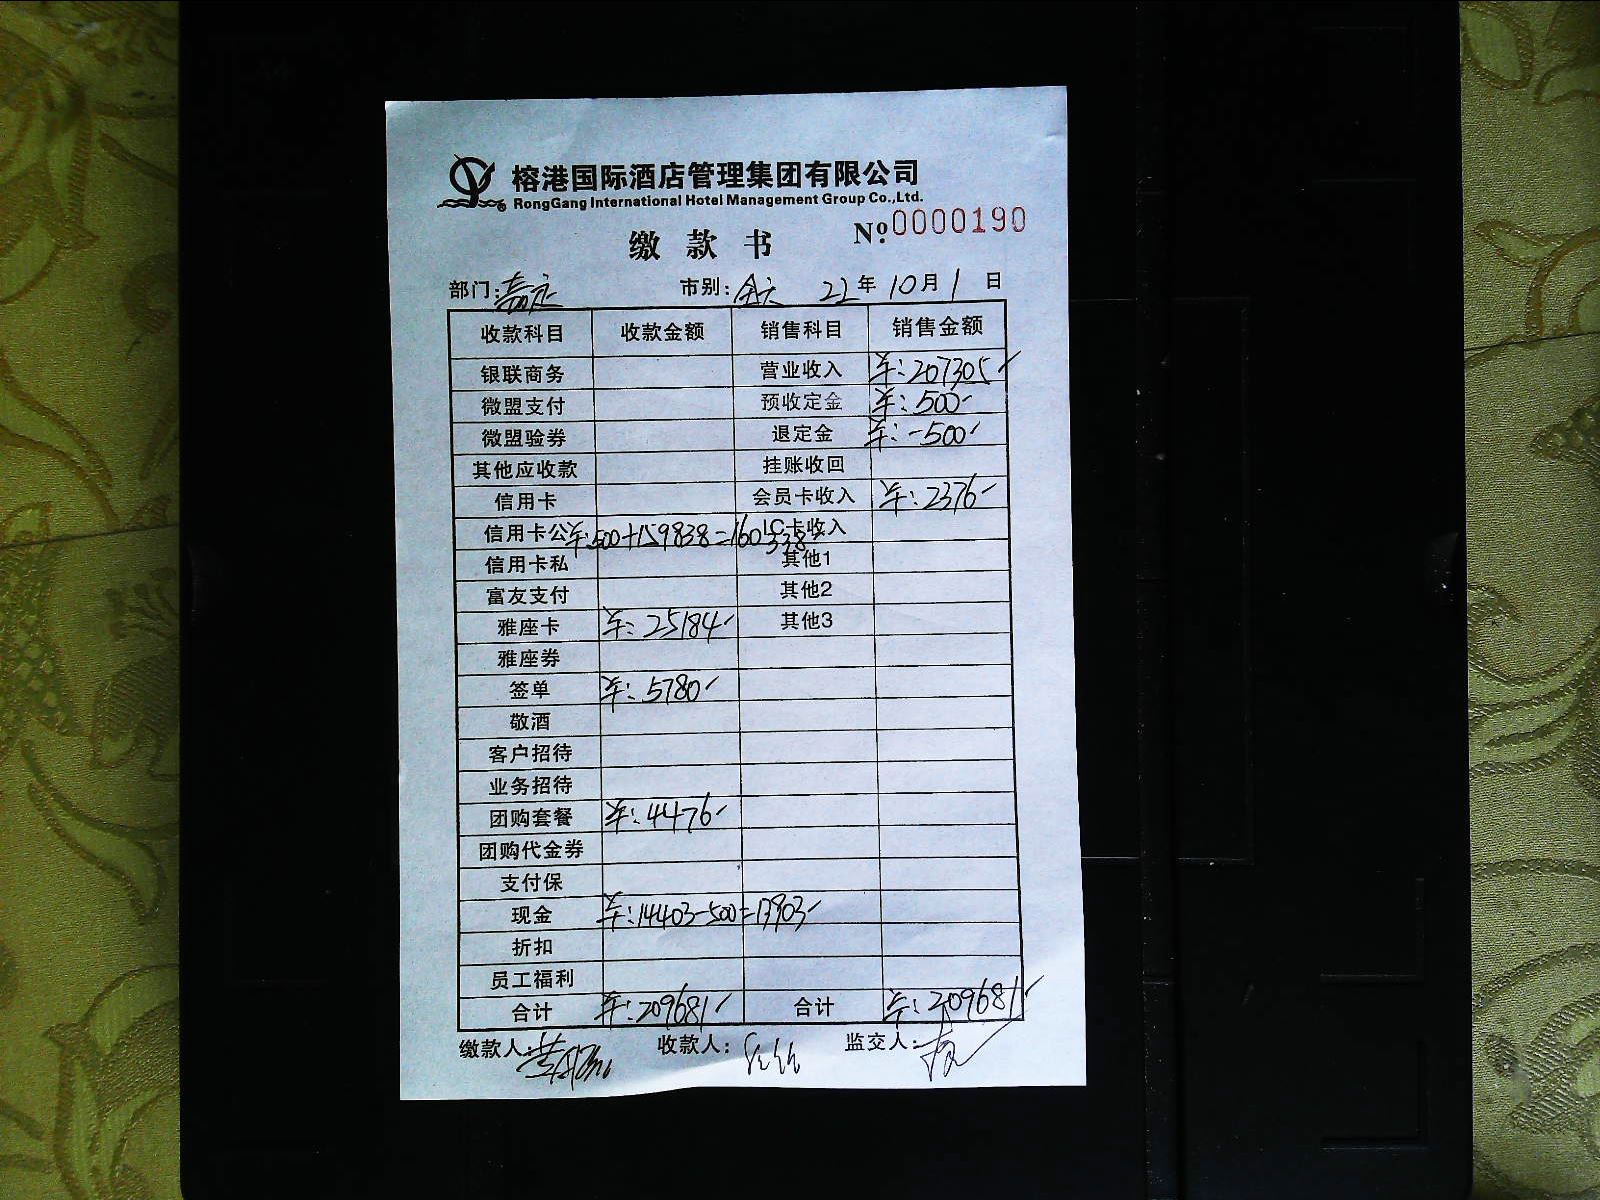 榕港国际酒店管理集团有限公司
RongGang International Hotel Management Group Co.,Ltd.
缴款书 №0000190
部门:嘉定 市别:全天 22年10月1日
收款科目 收款金额 销售科目 销售金额
银联商务 营业收入 ¥:207305
微盟支付 预收定金 ¥:500
微盟验券 退定金 ¥:-500
其他应收款 挂账收回
信用卡 会员卡收入 ¥:2376
信用卡公 ¥:500+159838=160338 IC卡收入
信用卡私 其他1
富友支付 其他2
雅座卡 ¥:25184 其他3
雅座券
签单 ¥:5780
敬酒
客户招待
业务招待
团购套餐 ¥:4476
团购代金券
支付保
现金 ¥:14403-500=13903
折扣
员工福利
合计 ¥:209681 合计 ¥:209681
缴款人: 收款人: 监交人: